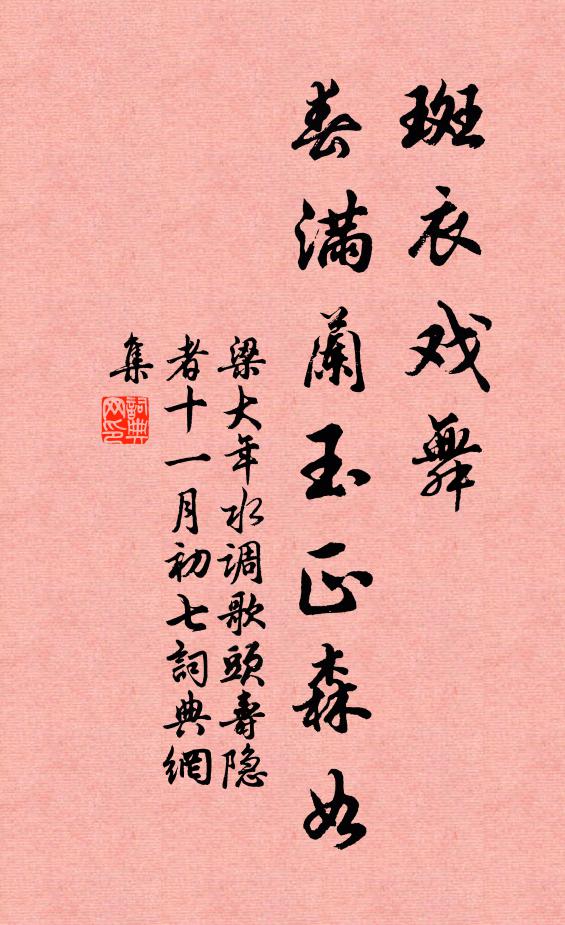 斑衣戏舞
春满蘭玉正森如
梁大年水调歌頭壽隐
者十一月初七詞典網
集
詞典網印